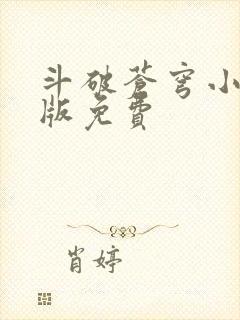 斗破苍穹小
版免費
肖婷